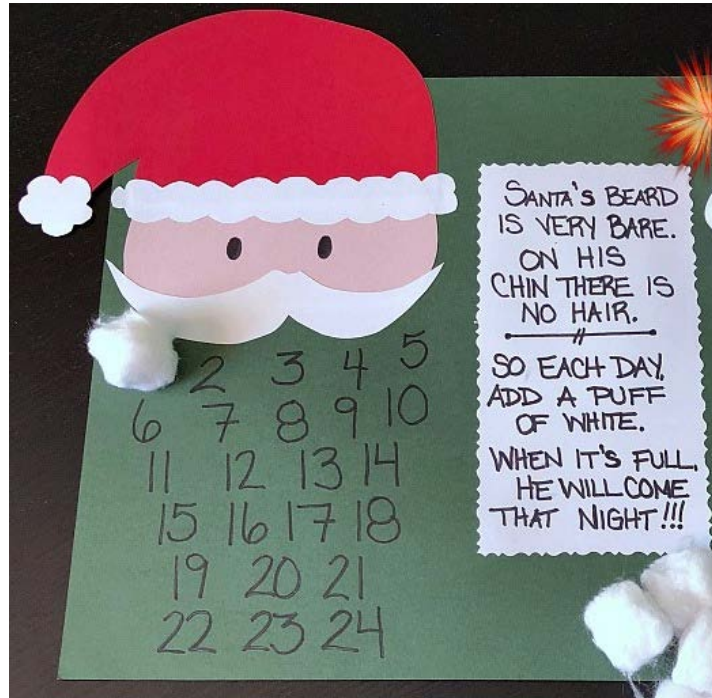 SANTA'S BEARD
IS VERY BARE.
ON HIS
CHIN THERE IS
NO HAIR.
SO EACH DAY,
ADD A PUFF
OF WHITE.
WHEN IT'S FULL,
HE WILL COME
THAT NIGHT!!!
2 3 4 5
6 7 8 9 10
11 12 13 14
15 16 17 18
19 20 21
22 23 24